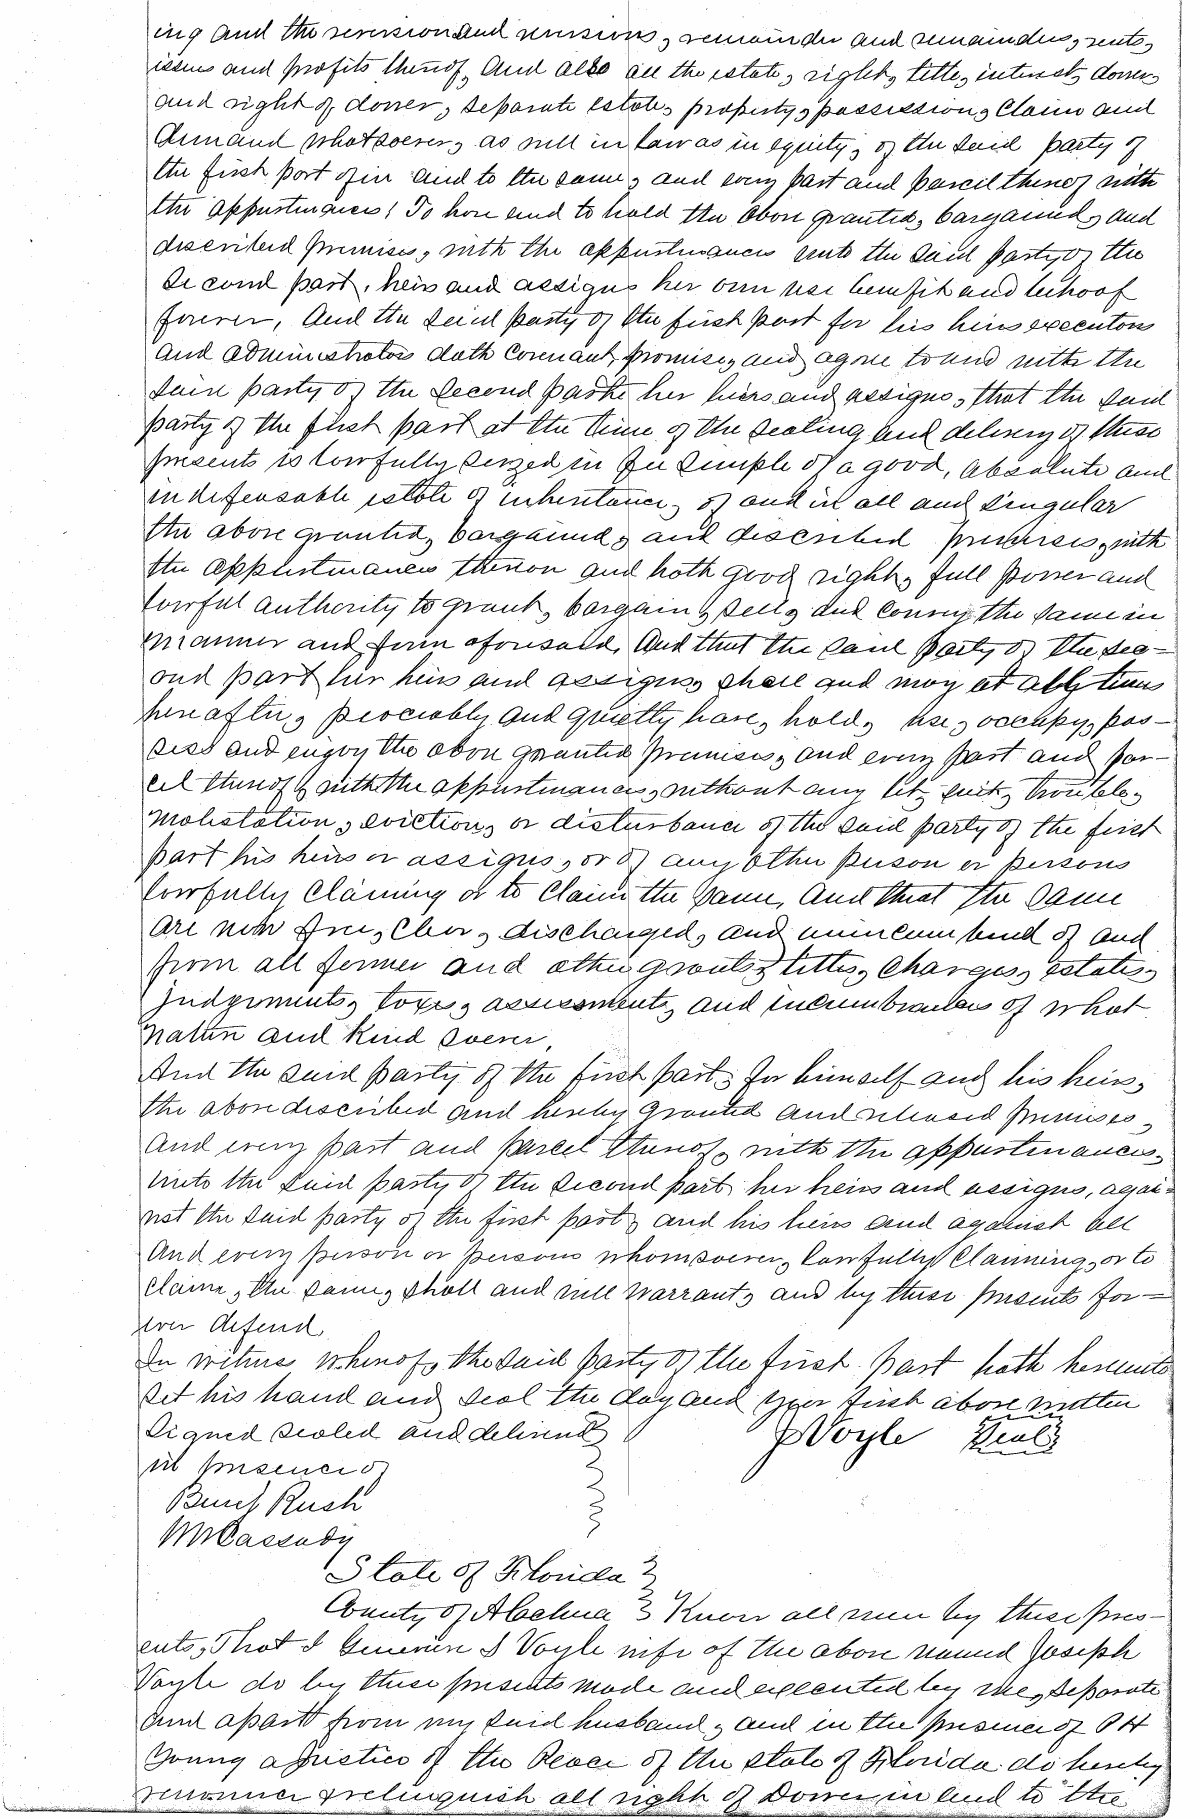 ing and the reversion and reversions, remainder and remainders, rents,
issues and profits thereof, And also all the estate, right, title, interest, dower
and right of dower, separate estate, property, possession, Claim and
demand whatsoever, as well in law as in equity, of the said party of
the first part of in and to the same, and every part and parcel thereof with
the appurtenances! To have and to hold the above granted, bargained, and
described premises, with the appurtenances unto the said party of the
second part, heirs and assigns her own use benefit and behoof
forever, And the said party of the first part for his heirs executors
and administrators doth covenant, promise, and agree to and with the
said party of the second part her hiers and assigns, that the said
party of the first part at the time of the sealing and delivery of these
presents is lawfully seized in fee simple of a good, absolute and
indefeasable estate of inheritance, of and in all and singular
the above granted, bargained, and described premises, with
the appurtenances thereon and hath good right, full power and
lawful authority to grant, bargain, sell, and convey the same in
manner and form aforesaid, And that the said party of the sec-
ond part her heirs and assigns, shall and may at all times
hereafter, peaceably and quietly have, hold, use, occupy, pos-
sess and enjoy the above granted premises, and every part and par-
cel thereof with the appurtenances, without any let, suit, trouble,
molestation, eviction, or disturbance of the said party of the first
part his heirs or assigns, or of any other person or persons
lawfully claiming or to claim the same, And that the same
are now free, clear, discharged, and unincumbered of and
from all former and other grants, titles, charges, estates,
judgements, taxes, assessments, and incumbrances of what
nature and kind soever,
And the said party of the first part, for himself and his heirs,
the above described and hereby granted and released premises,
and every part and parcel thereof, with the appurtenances,
unto the said party of the second part her heirs and assigns, agai-
nst the said party of the first part, and his heirs and against all
And every person or persons whomsoever, lawfully claiming, or to
claim, the same, shall and will warrant, and by these presents for-
ever defend,
In witness whereof, the said party of the first part hath hereunto
set his hand and seal the day and year first above written
Signed sealed and delivered J Voyle Seal
in presence of
Benj Rush
Cassady
State of Florida
County of Alachua Know all men by these pres-
ents, That I S Voyle wife of the above named Joseph
Voyle do by these presents made and executed by me, separate
and apart from my said husband, and in the presence of P H
Young a Justice of the Peace of the State of Florida do hereby
renounce & relinquish all right of Dower in and to the